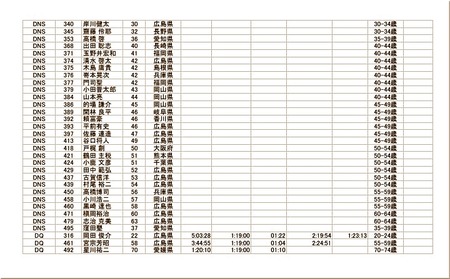 DNS 340 岸川健太 30 広島県 30-34歳
DNS 345 齋藤 伶那 32 長野県 30-34歳
DNS 353 高橋 啓 36 愛知県 35-39歳
DNS 368 出田 聡志 40 長崎県 40-44歳
DNS 371 玉野井宏和 41 福岡県 40-44歳
DNS 374 清水 啓太 42 広島県 40-44歳
DNS 375 木島 鷹貴 42 広島県 40-44歳
DNS 376 寄本晃次 42 兵庫県 40-44歳
DNS 377 門司聖 42 福岡県 40-44歳
DNS 379 小田晋太郎 43 岡山県 40-44歳
DNS 384 山本亮 44 岡山県 40-44歳
DNS 386 的場 謙介 45 岡山県 45-49歳
DNS 389 関林 良平 46 岐阜県 45-49歳
DNS 392 頼富豪 46 香川県 45-49歳
DNS 393 平前有史 46 広島県 45-49歳
DNS 397 佐藤 運造 47 広島県 45-49歳
DNS 413 谷口将人 49 広島県 45-49歳
DNS 418 戸梶 創 50 大阪府 50-54歳
DNS 421 鶴田 主税 51 熊本県 50-54歳
DNS 424 小鹿 文彦 51 千葉県 50-54歳
DNS 429 田中 範弘 52 広島県 50-54歳
DNS 437 古賀信洋 53 広島県 50-54歳
DNS 439 村尾 裕二 54 広島県 50-54歳
DNS 450 高橋博司 56 兵庫県 55-59歳
DNS 458 小川浩二 57 岡山県 55-59歳
DNS 460 黒崎 達也 58 広島県 55-59歳
DNS 471 積岡裕治 60 広島県 60-64歳
DNS 479 志治 克美 63 広島県 60-64歳
DNS 495 窪田塁 37 愛知県 35-39歳
DQ 316 岡田 俊介 22 広島県 5:03:28 1:19:00 01:22 2:19:54 1:23:13 20-24歳
DQ 461 宮宗芳昭 58 広島県 3:44:55 1:19:00 01:04 2:24:51 55-59歳
DQ 492 星川祐二 70 愛媛県 1:20:10 1:19:00 01:10 70-74歳